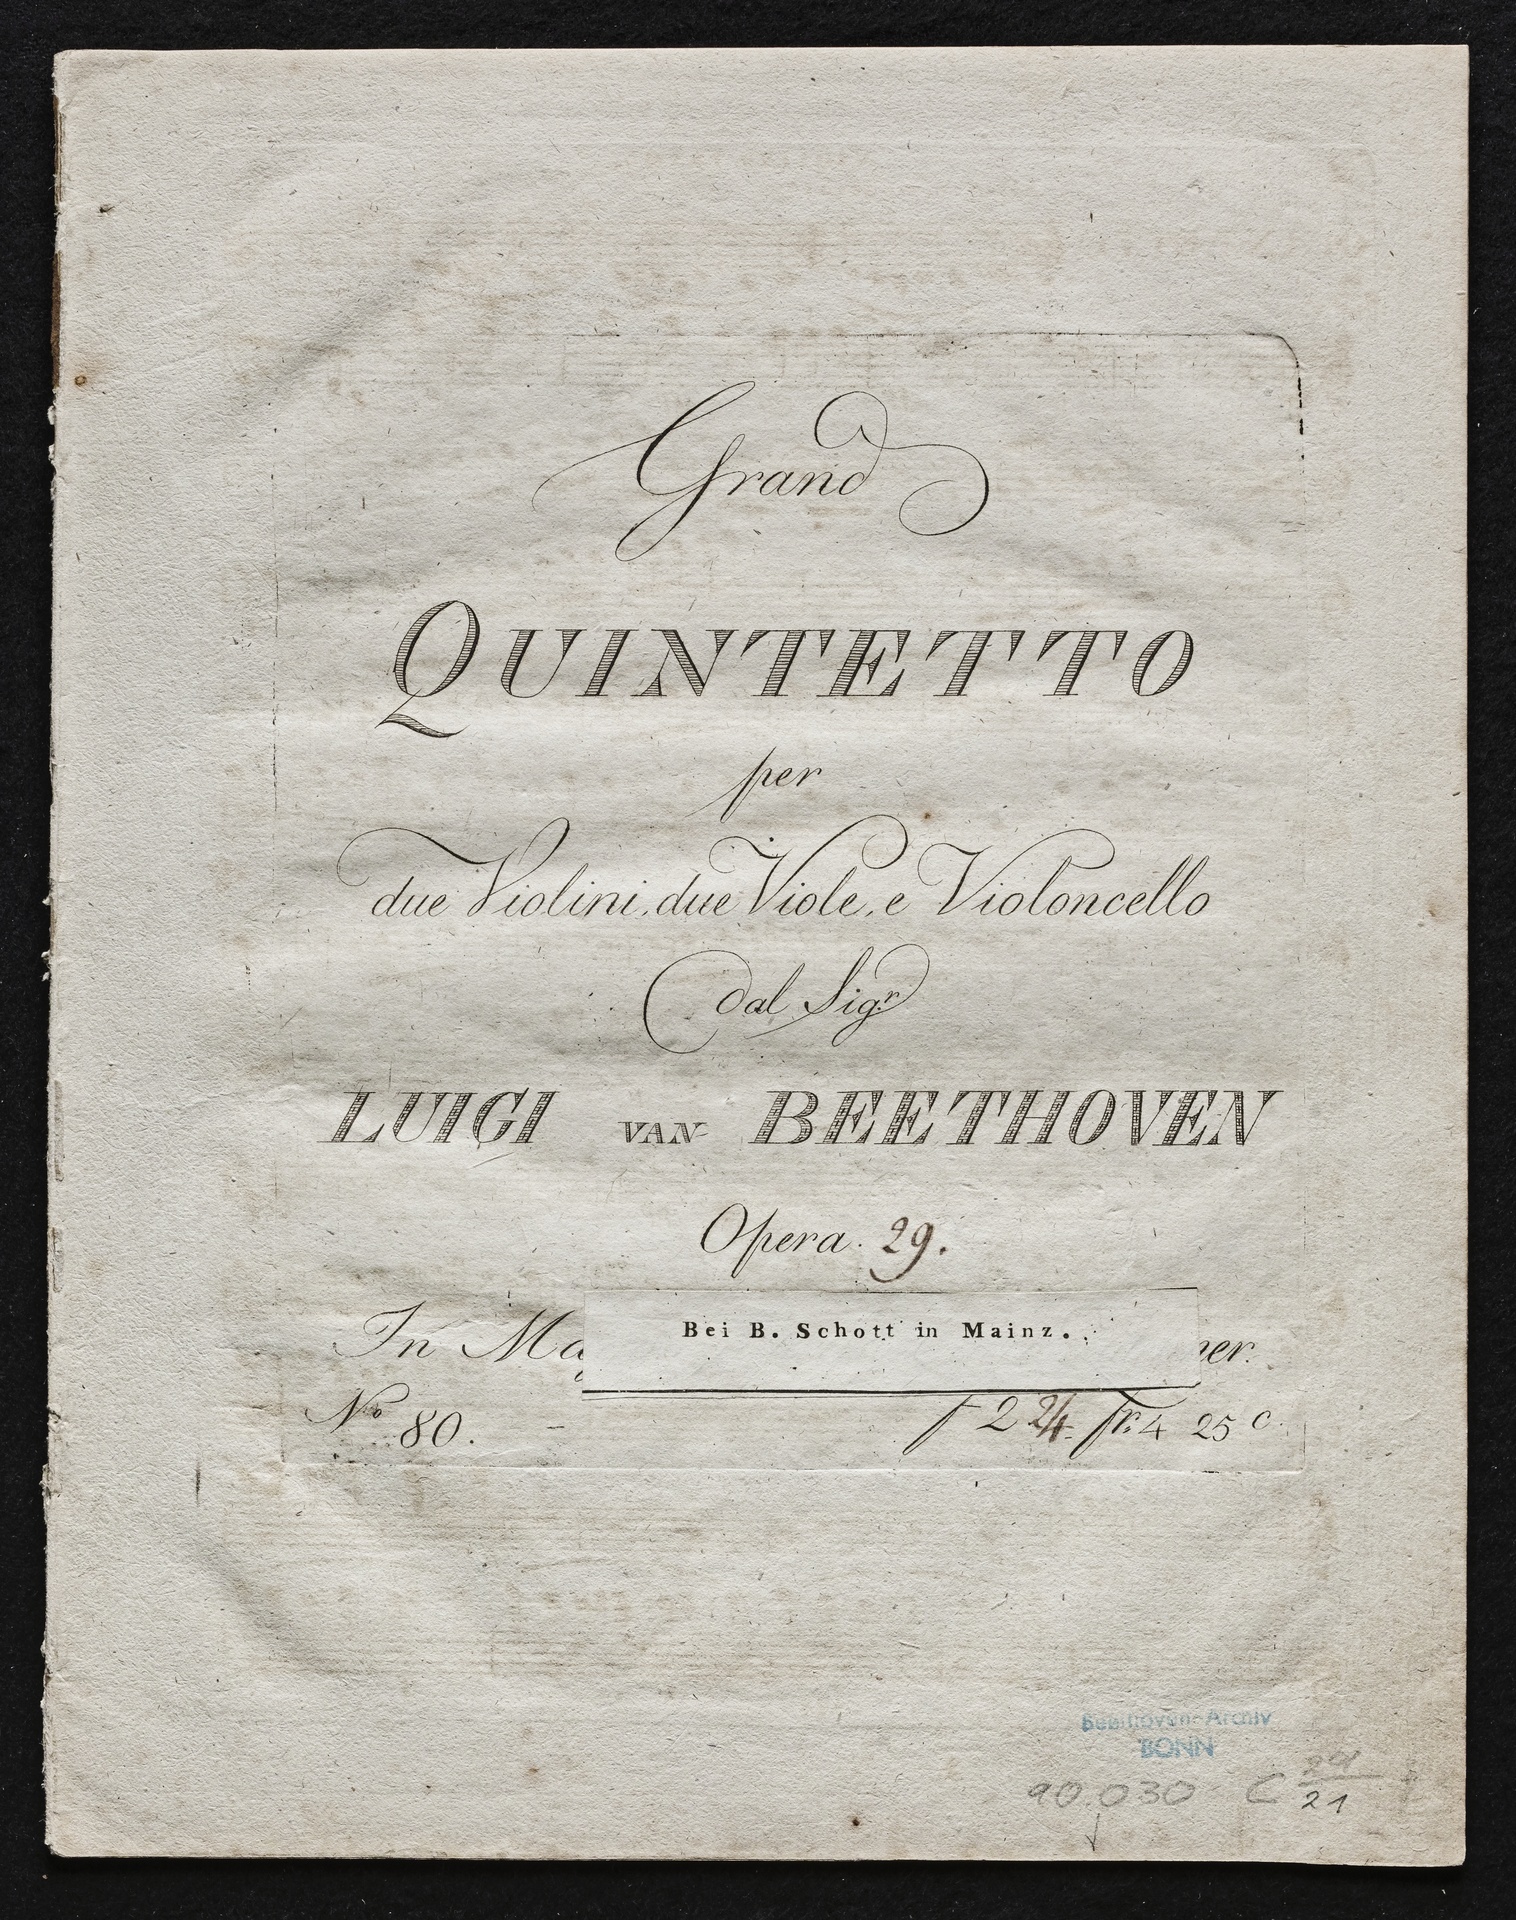 Grand
QUINTETTO
per
due Violini, due Viole, e Violoncello
dal Sigr.
LUIGI VAN BEETHOVEN
Opera. 29.
In Ma
Bei B. Schott in Mainz.
er.
No 80.
f 2 24. fr. 4 25 c.
Beethoven-Archiv
BONN
90.030 C 29
21